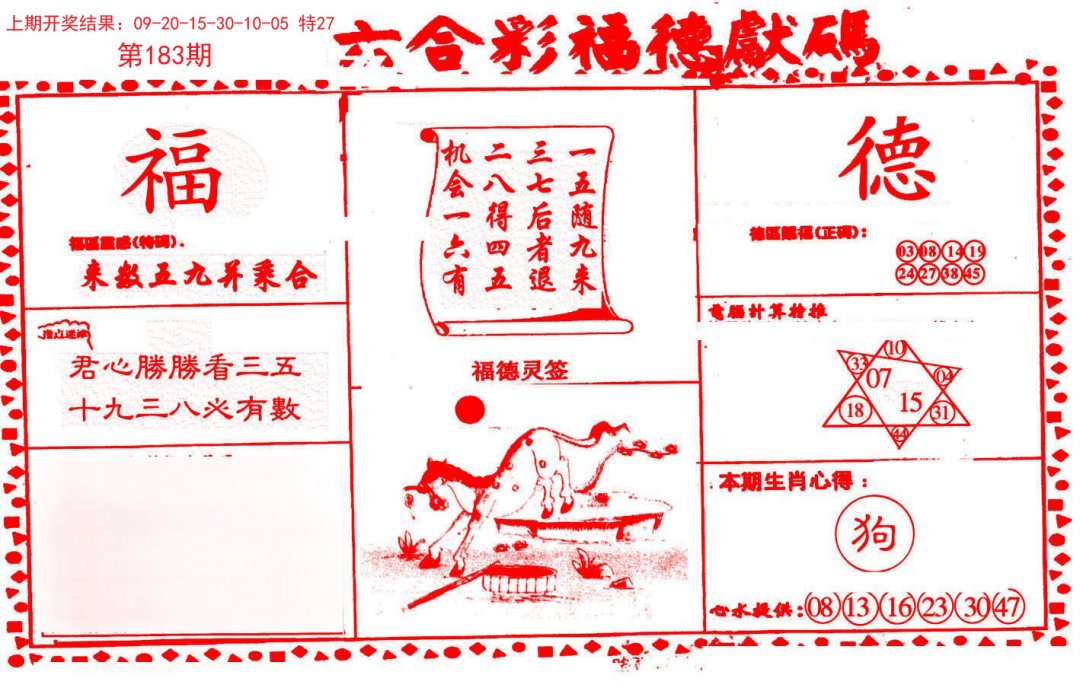 上期开奖结果：09-20-15-30-10-05 特27
第183期
六合彩福德獻碼
福
福區靈感(特碼)．
来数五九并乘合
指点迷津
君心勝勝看三五
十九三八必有數
一五随九来
三七后者退
二八得四五
机会一六有
福德灵签
德
德區賜福(正碼)：
03 08 14 19
24 27 38 45
電腦計算特推
10
33 07 04
18 15 31
44
本期生肖心得：
狗
心水提供：08 13 16 23 30 47